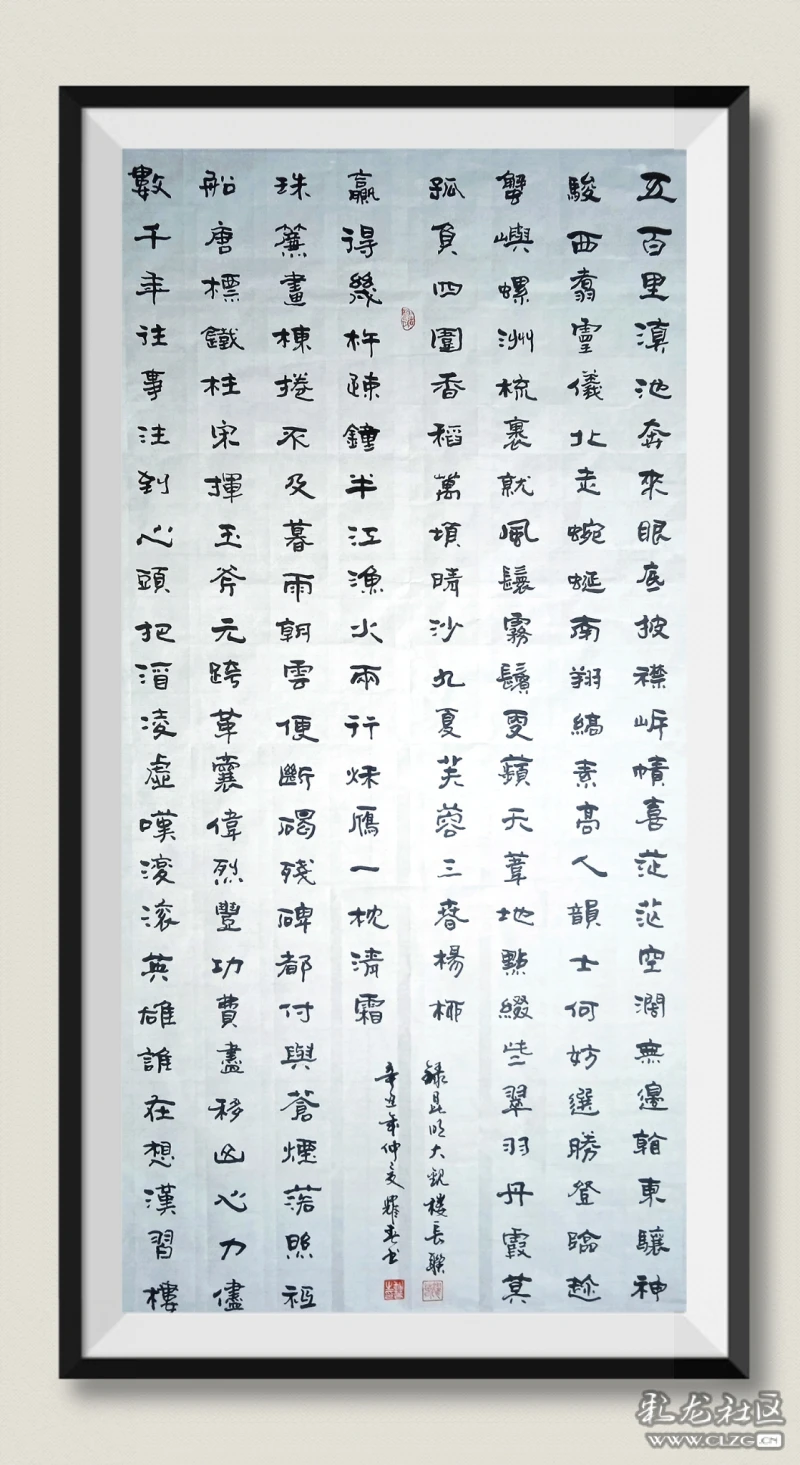 五百里滇池奔來眼底披襟岸幘喜茫茫空闊無邊看東驤神
駿西翥靈儀北走蜿蜒南翔縞素高人韻士何妨選勝登臨趁
蟹嶼螺洲梳裹就風鬟霧鬢更蘋天葦地點綴些翠羽丹霞莫
孤負四圍香稻萬頃晴沙九夏芙蓉三春楊柳
錄昆明大觀樓長聯
數千年往事注到心頭把酒凌虛嘆滾滾英雄誰在想漢習樓
船唐標鐵柱宋揮玉斧元跨革囊偉烈豐功費盡移山心力儘
珠簾畫棟捲不及暮雨朝雲便斷碣殘碑都付與蒼煙落照祗
贏得幾杵疎鐘半江漁火兩行秋雁一枕清霜
辛丑年仲夏書
彩龙社区
WWW.CLZG.CN